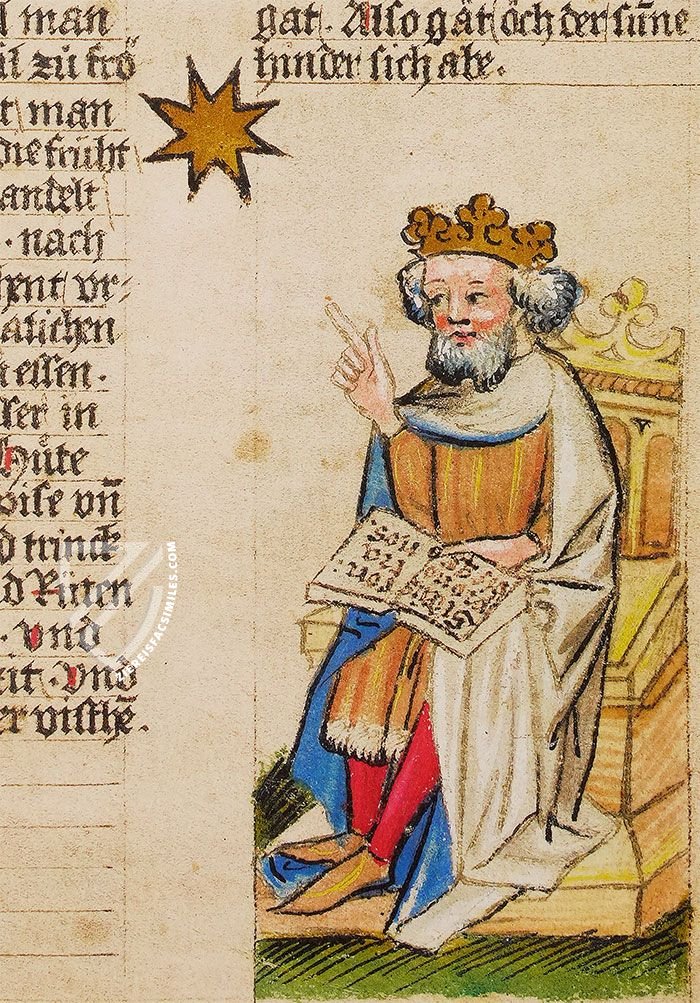 l man
zů frö
t man
die früht
andelt
. nach
hent vr-
atichen
essen.
ser in
Hüte
wise vn̄
d trinck
d Ritten
. vnd
eit. Vnd
er visthē.
gat. Also gat öch der sunne
hinder sich abe.
ZIEREISFACSIMILES.COM